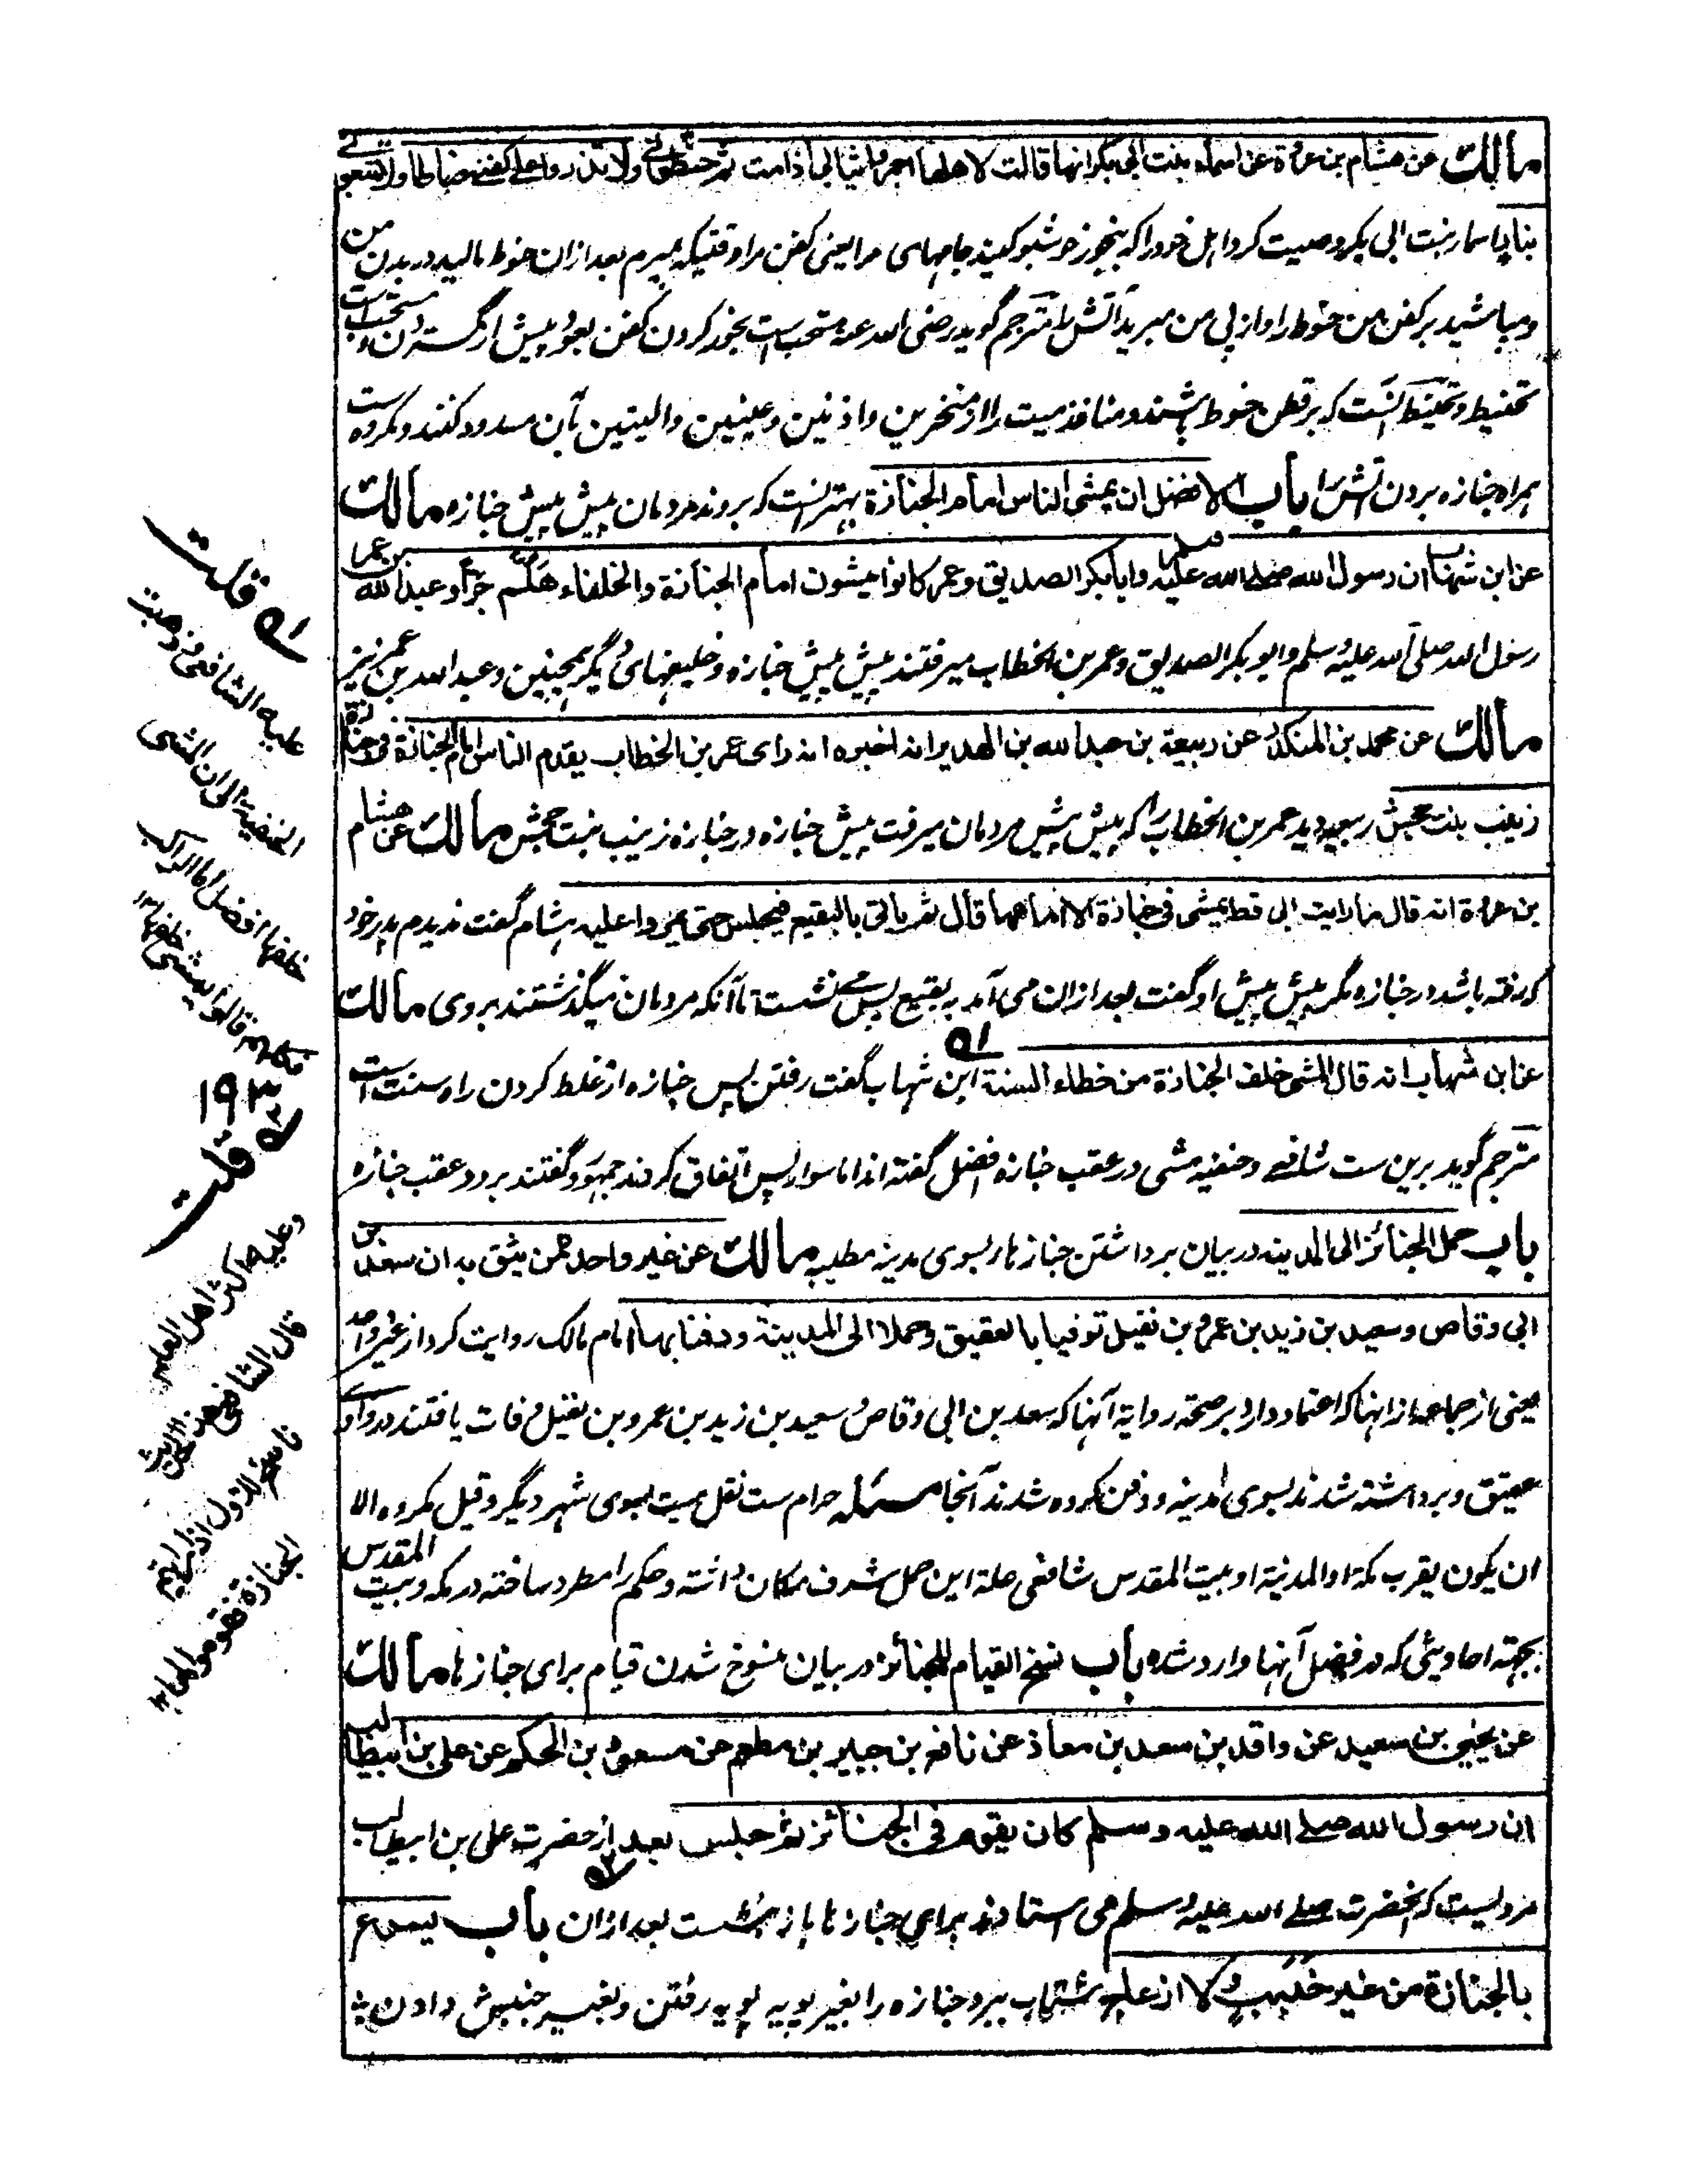 مالك عن هشام بن عروة عن اسماء بنت ابی بکر انها قالت لاهلها اجمروا ثیابی اذا مت ثم حنطونی ولا تذروا علی کفنی حناطا ولا تتبعونی
اسمار بنت ابی بکر وصیت کرد اہل خود را کہ بخور خوشبو کنید جامہای مرا یعنی کفن مرا وقتیکہ بمیرم بعد ازان حنوط مالید در بدن من
ومپاشید بر کفن من حنوط را واز پی من مبرید آتش را مترجم گوید رضی اللہ عنہ مستحب ست بخور کردن کفن بعود پیش از گستردن و مستحب است
تحنیط و تحنیط آنست کہ بر قطن حنوط پاشند و منافذ میت را از منخرین و اذنین و عینین و الیتین بآن مسدود کنند و مکروہ ست
ہمراہ جنازہ بردن آتش را باب الافضل ان یمشی الناس امام الجنازة بہتر آنست کہ بروند مردمان پیش پیش جنازہ مالك
عن ابن شهاب ان رسول الله صلی الله علیه وسلم وابا بکر الصدیق وعمر کانوا یمشون امام الجنازة والخلفاء هلم جرا وعبد الله بن عمر
رسول اللہ صلی اللہ علیہ وسلم و ابو بکر الصدیق و عمر بن الخطاب میرفتند پیش پیش جنازہ و خلیفہای دیگر ہمچنین و عبد اللہ بن عمر نیز
مالك عن محمد بن المنکدر عن ربیعة بن عبد الله بن الهدیر انه اخبره انه رای عمر بن الخطاب یقدم الناس امام الجنازة فی جنازة
زینب بنت جحش ربیعہ دید عمر بن الخطاب را کہ پیش پیش مردمان میرفت پیش جنازہ در جنازہ زینب بنت جحش مالك عن هشام
بن عروة انه قال ما رایت ابی قط یمشی فی جنازة الا امامها قال ثم یاتی بالبقیع فیجلس حتی یمروا علیه ہشام گفت ندیدم پدر خود
کہ رفتہ باشد در جنازہ مگر پیش پیش او گفت بعد ازان می آمد بہ بقیع پس می نشست تا آنکہ مردمان میگذشتند بروی مالك
عن ابن شهاب انه قال المشی خلف الجنازة من خطاء السنة ابن شہاب گفت رفتن پس جنازہ از غلط کردن راہ سنت است
مترجم گوید برین ست شافعی و حنفیہ مشی در عقب جنازہ افضل گفتہ اند اما سوار پس اتفاق کردند جمہور و گفتند برود عقب جنازہ
باب حمل الجنائز الی المدینه در بیان برداشتن جنازہا بسوی مدینہ مطیبہ مالك عن غیر واحد ممن یثق به ان سعد بن
ابی وقاص وسعید بن زید بن عمرو بن نفیل توفیا بالعقیق وحملا الی المدینة ودفنا بها امام مالک روایت کرد از غیر واحد
یعنی از جماعہ از انہا کہ اعتماد دارد بر صحتہ روایۃ آنہا کہ سعد بن ابی وقاص و سعید بن زید بن عمرو بن نفیل وفات یافتند در وادی
عقیق و برداشتہ شدند بسوی مدینہ و دفن کردہ شدند آنجا مسئلہ حرام ست نقل میت بسوی شہر دیگر و قیل مکروہ الا
ان یکون بقرب مکۃ او المدینۃ او بیت المقدس شافعی علۃ این حمل شرف مکان داشتہ و حکم را مطرد ساختہ در مکہ و بیت المقدس
بجہۃ احادیثی کہ در فضل آنہا وارد شدہ باب نسخ القیام للجنائز در بیان منسوخ شدن قیام برای جنازہا مالك
عن یحیی بن سعید عن واقد بن سعد بن معاذ عن نافع بن جبیر بن مطعم عن مسعود بن الحکم عن علی بن ابیطالب
ان رسول الله صلی الله علیه وسلم کان یقوم فی الجنائز ثم جلس بعد از حضرت علی بن ابیطالب
مرویست کہ آنحضرت صلی اللہ علیہ وسلم می استادند برای جنازہا باز نشست بعد ازان باب یسرع
بالجنازة من غیر خبب شتاب ببرد جنازہ را بغیر پویہ پویہ رفتن و بغیر جنبش دادن
۵۱ قلت
علیه الشافعی وذهبت
الحنفیة الی ان المشی
خلفها افضل اما الراکب
قالوا یمشی خلفها ۱۲
۱۹۳
۵۲ قلت
وعلیه اکثر اهل العلم
قال الشافعی
ناسخ للاول اذا رایتم
الجنازة فقوموا لها ۱۲